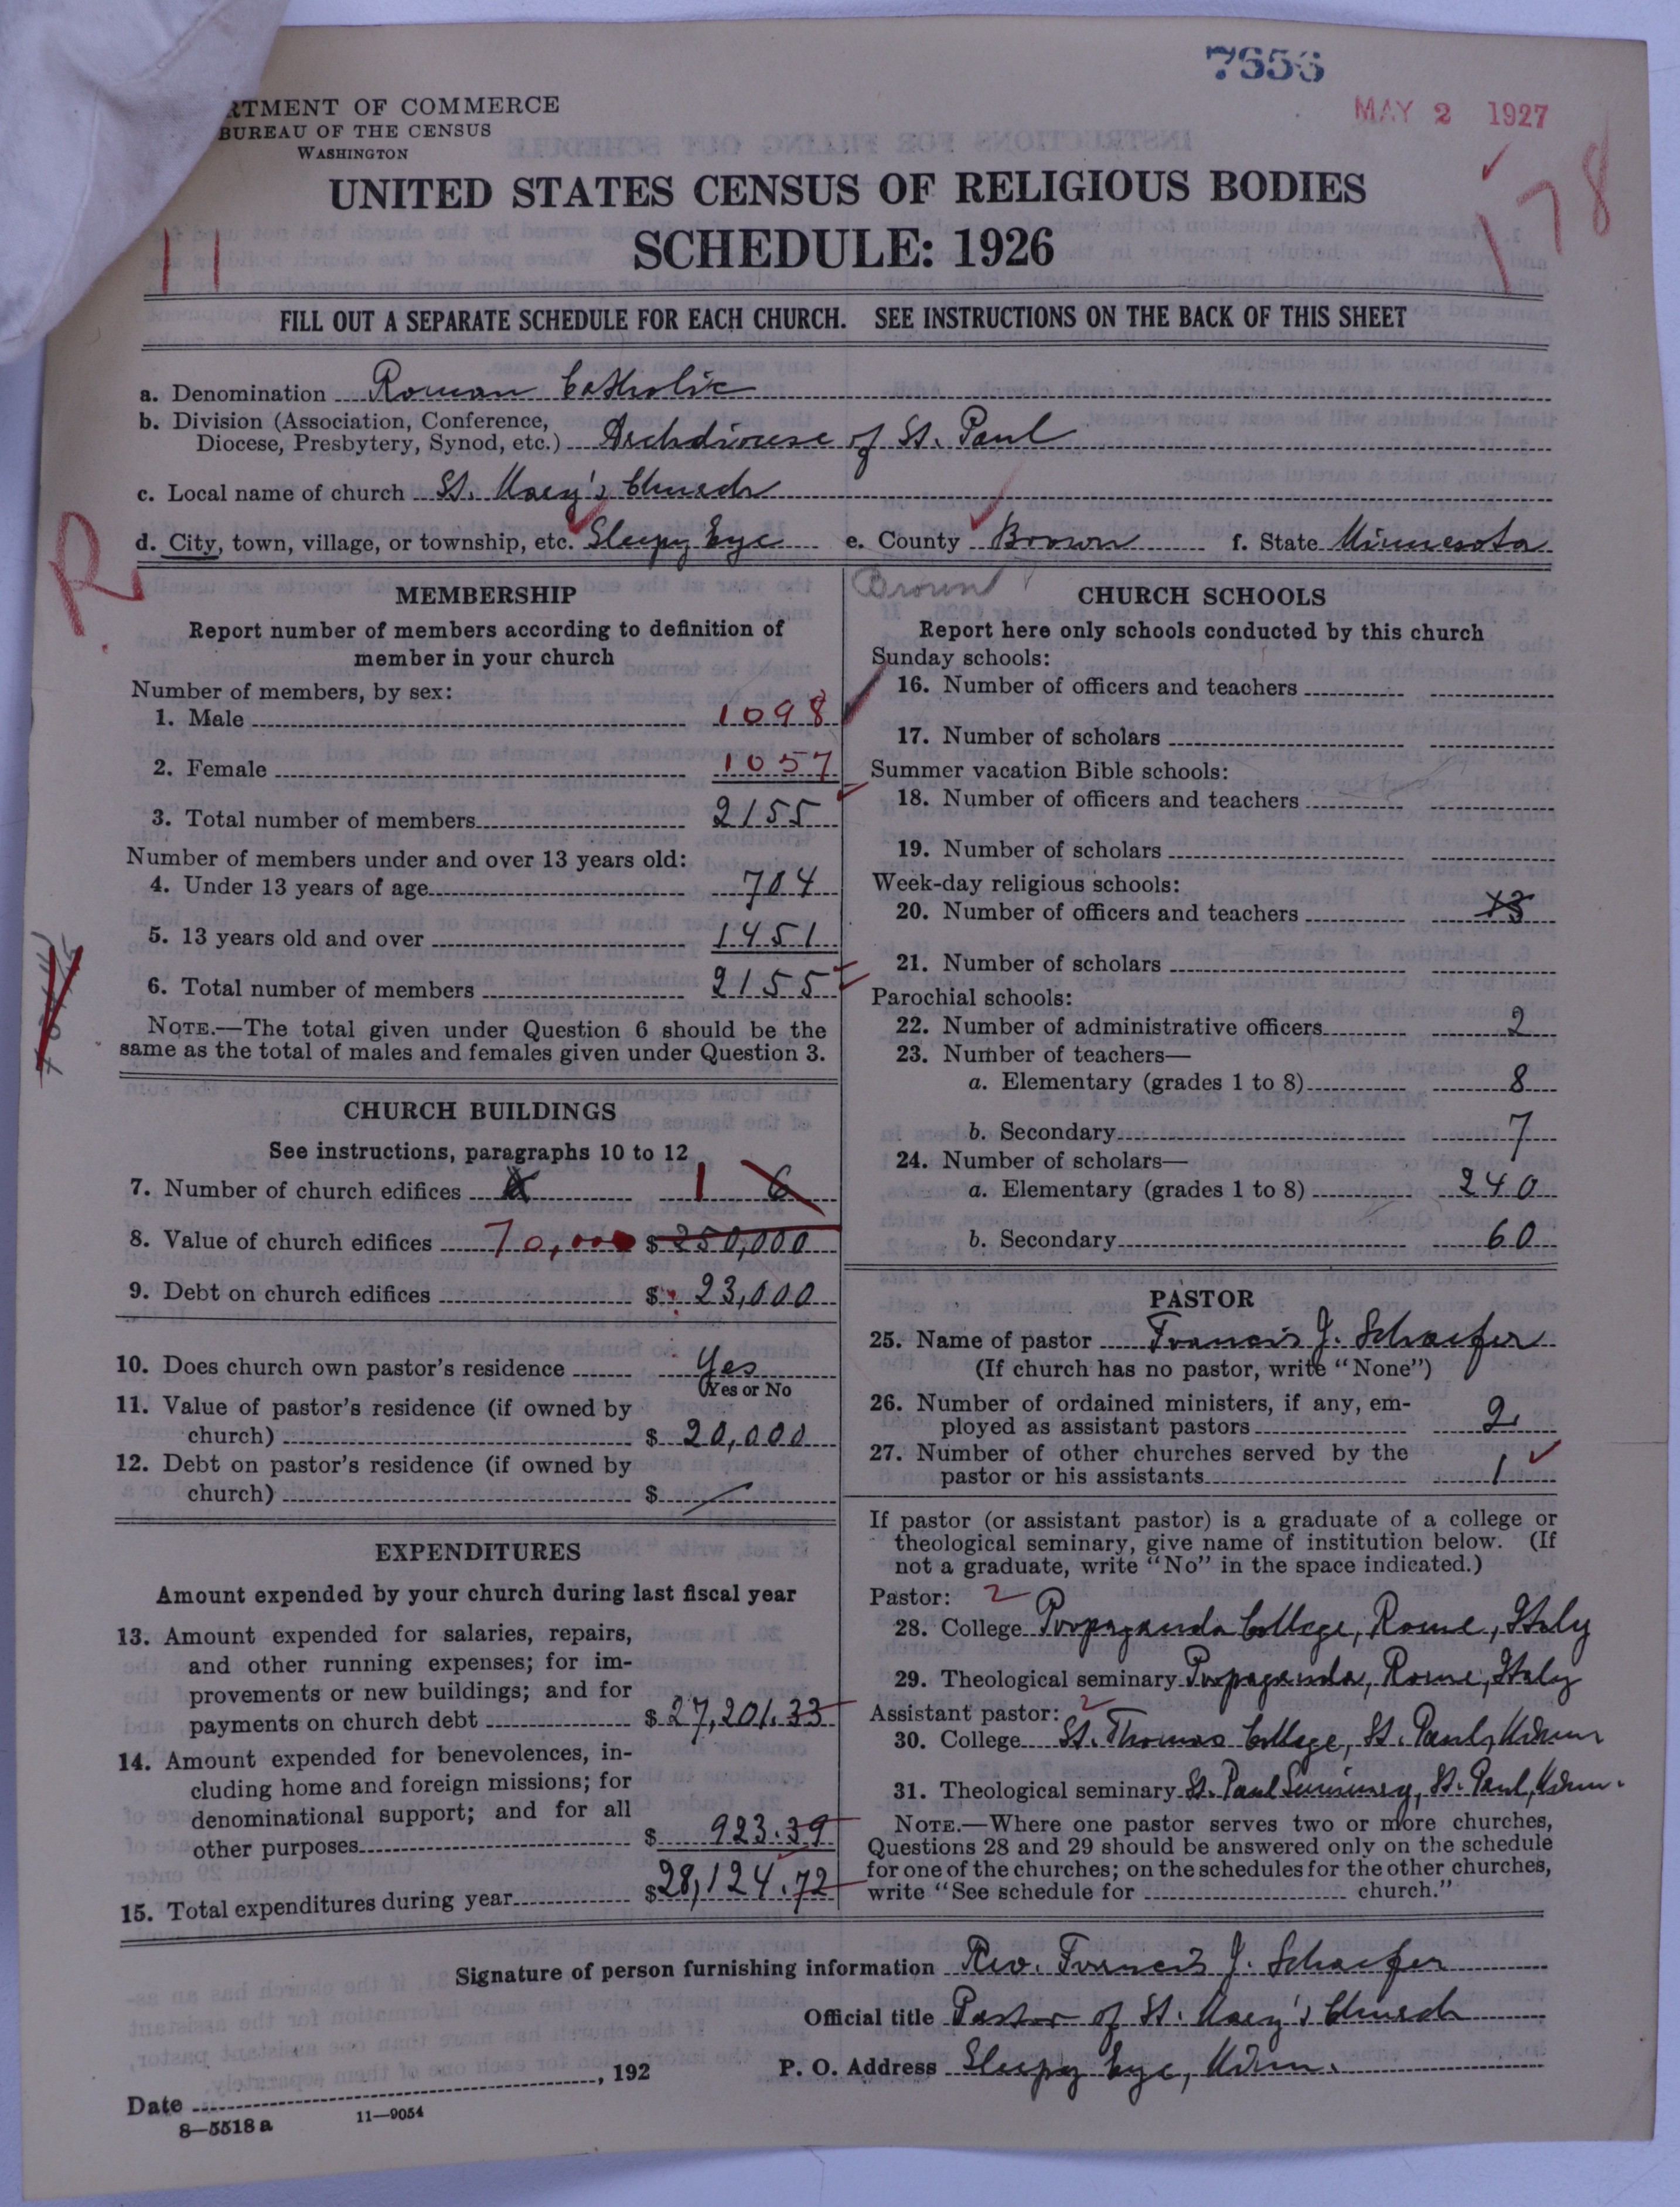 7656
MAY 2 1927
RTMENT OF COMMERCE
BUREAU OF THE CENSUS
WASHINGTON
178
UNITED STATES CENSUS OF RELIGIOUS BODIES
SCHEDULE: 1926
11
FILL OUT A SEPARATE SCHEDULE FOR EACH CHURCH. SEE INSTRUCTIONS ON THE BACK OF THIS SHEET
a. Denomination Roman Catholic
b. Division (Association, Conference,
Diocese, Presbytery, Synod, etc.) Archdiocese of St. Paul
c. Local name of church St. Mary's Church
d. City, town, village, or township, etc. Sleepy Eye e. County Brown f. State Minnesota
R
MEMBERSHIP
Report number of members according to definition of
member in your church
Number of members, by sex:
1. Male 1098
2. Female 1057
3. Total number of members 2155
Number of members under and over 13 years old:
4. Under 13 years of age 704
5. 13 years old and over 1451
6. Total number of members 2155
NOTE.—The total given under Question 6 should be the
same as the total of males and females given under Question 3.
CHURCH BUILDINGS
See instructions, paragraphs 10 to 12
7. Number of church edifices 1 6
8. Value of church edifices 70,000 $ 250,000
9. Debt on church edifices $ 23,000
10. Does church own pastor's residence Yes
Yes or No
11. Value of pastor's residence (if owned by
church) $ 20,000
12. Debt on pastor's residence (if owned by
church) $ —
EXPENDITURES
Amount expended by your church during last fiscal year
13. Amount expended for salaries, repairs,
and other running expenses; for im-
provements or new buildings; and for
payments on church debt $ 27,201.33
14. Amount expended for benevolences, in-
cluding home and foreign missions; for
denominational support; and for all
other purposes $ 923.39
15. Total expenditures during year $ 28,124.72
Brown
CHURCH SCHOOLS
Report here only schools conducted by this church
Sunday schools:
16. Number of officers and teachers
17. Number of scholars
Summer vacation Bible schools:
18. Number of officers and teachers
19. Number of scholars
Week-day religious schools:
20. Number of officers and teachers 13
21. Number of scholars
Parochial schools:
22. Number of administrative officers 2
23. Number of teachers—
a. Elementary (grades 1 to 8) 8
b. Secondary 7
24. Number of scholars—
a. Elementary (grades 1 to 8) 240
b. Secondary 60
PASTOR
25. Name of pastor Francis J. Schaefer
(If church has no pastor, write "None")
26. Number of ordained ministers, if any, em-
ployed as assistant pastors 2
27. Number of other churches served by the
pastor or his assistants 1
If pastor (or assistant pastor) is a graduate of a college or
theological seminary, give name of institution below. (If
not a graduate, write "No" in the space indicated.)
Pastor: 2
28. College Propaganda College, Rome, Italy
29. Theological seminary Propaganda, Rome, Italy
Assistant pastor: 2
30. College St. Thomas College, St. Paul, Minn
31. Theological seminary St. Paul Seminary, St. Paul, Minn.
NOTE.—Where one pastor serves two or more churches,
Questions 28 and 29 should be answered only on the schedule
for one of the churches; on the schedules for the other churches,
write "See schedule for church."
Signature of person furnishing information Rev. Francis J. Schaefer
Official title Pastor of St. Mary's Church
P. O. Address Sleepy Eye, Minn.
Date , 192
8—5518 a 11—9054